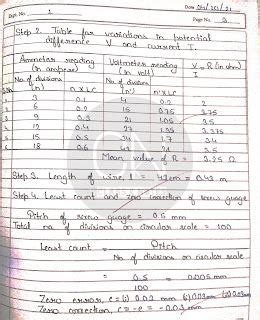 Expt. No. 1
Date 04/10/21
Page No. 3
Step 2. Table for variations in potential
difference V and current I.
Ammeter reading Voltmeter reading V = R (in ohm)
(in ampere) (in volt) I
No. of divisions No. of divisions
(n) n x LC n' x LC
3 0.1 4 0.2 2
6 0.2 15 0.75 3.75
9 0.3 21 1.05 3.5
12 0.4 27 1.35 3.375
15 0.5 34 1.7 3.4
18 0.6 42 2.1 3.5
Mean value of R = 3.25 Ω
Step 3. Length of wire, l = 43 cm = 0.43 m
Step 4. Least count and zero correction of screw guage
Pitch of screw guage = 0.5 mm
Total no. of divisions on circular scale = 100
Least count = Pitch
No. of divisions on circular scale
= 0.5 = 0.005 mm
100
Zero error, e = (i) 0.02 mm (ii) 0.03 mm (iii) 0.03 mm
Zero correction, c = -e = -0.03 mm